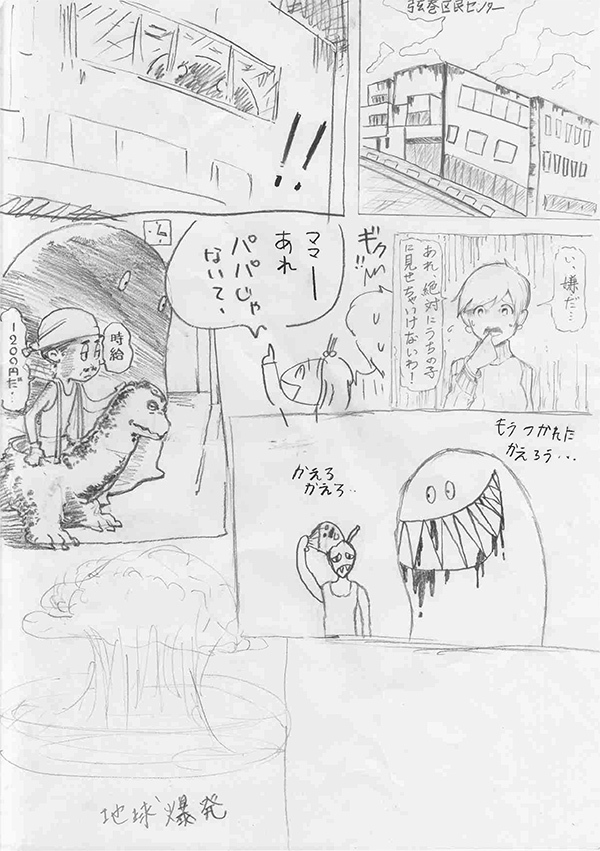 弦巻区民センター
!!
い、嫌だ…
あれ、絶対にうちの子
に見せちゃいけないわ!
ギクッ!!
ママー
あれ
パパじゃ
ないて、
時給
1200円だ…
もうつかれた
かえろう…
かえろ
かえろ…
地球爆発